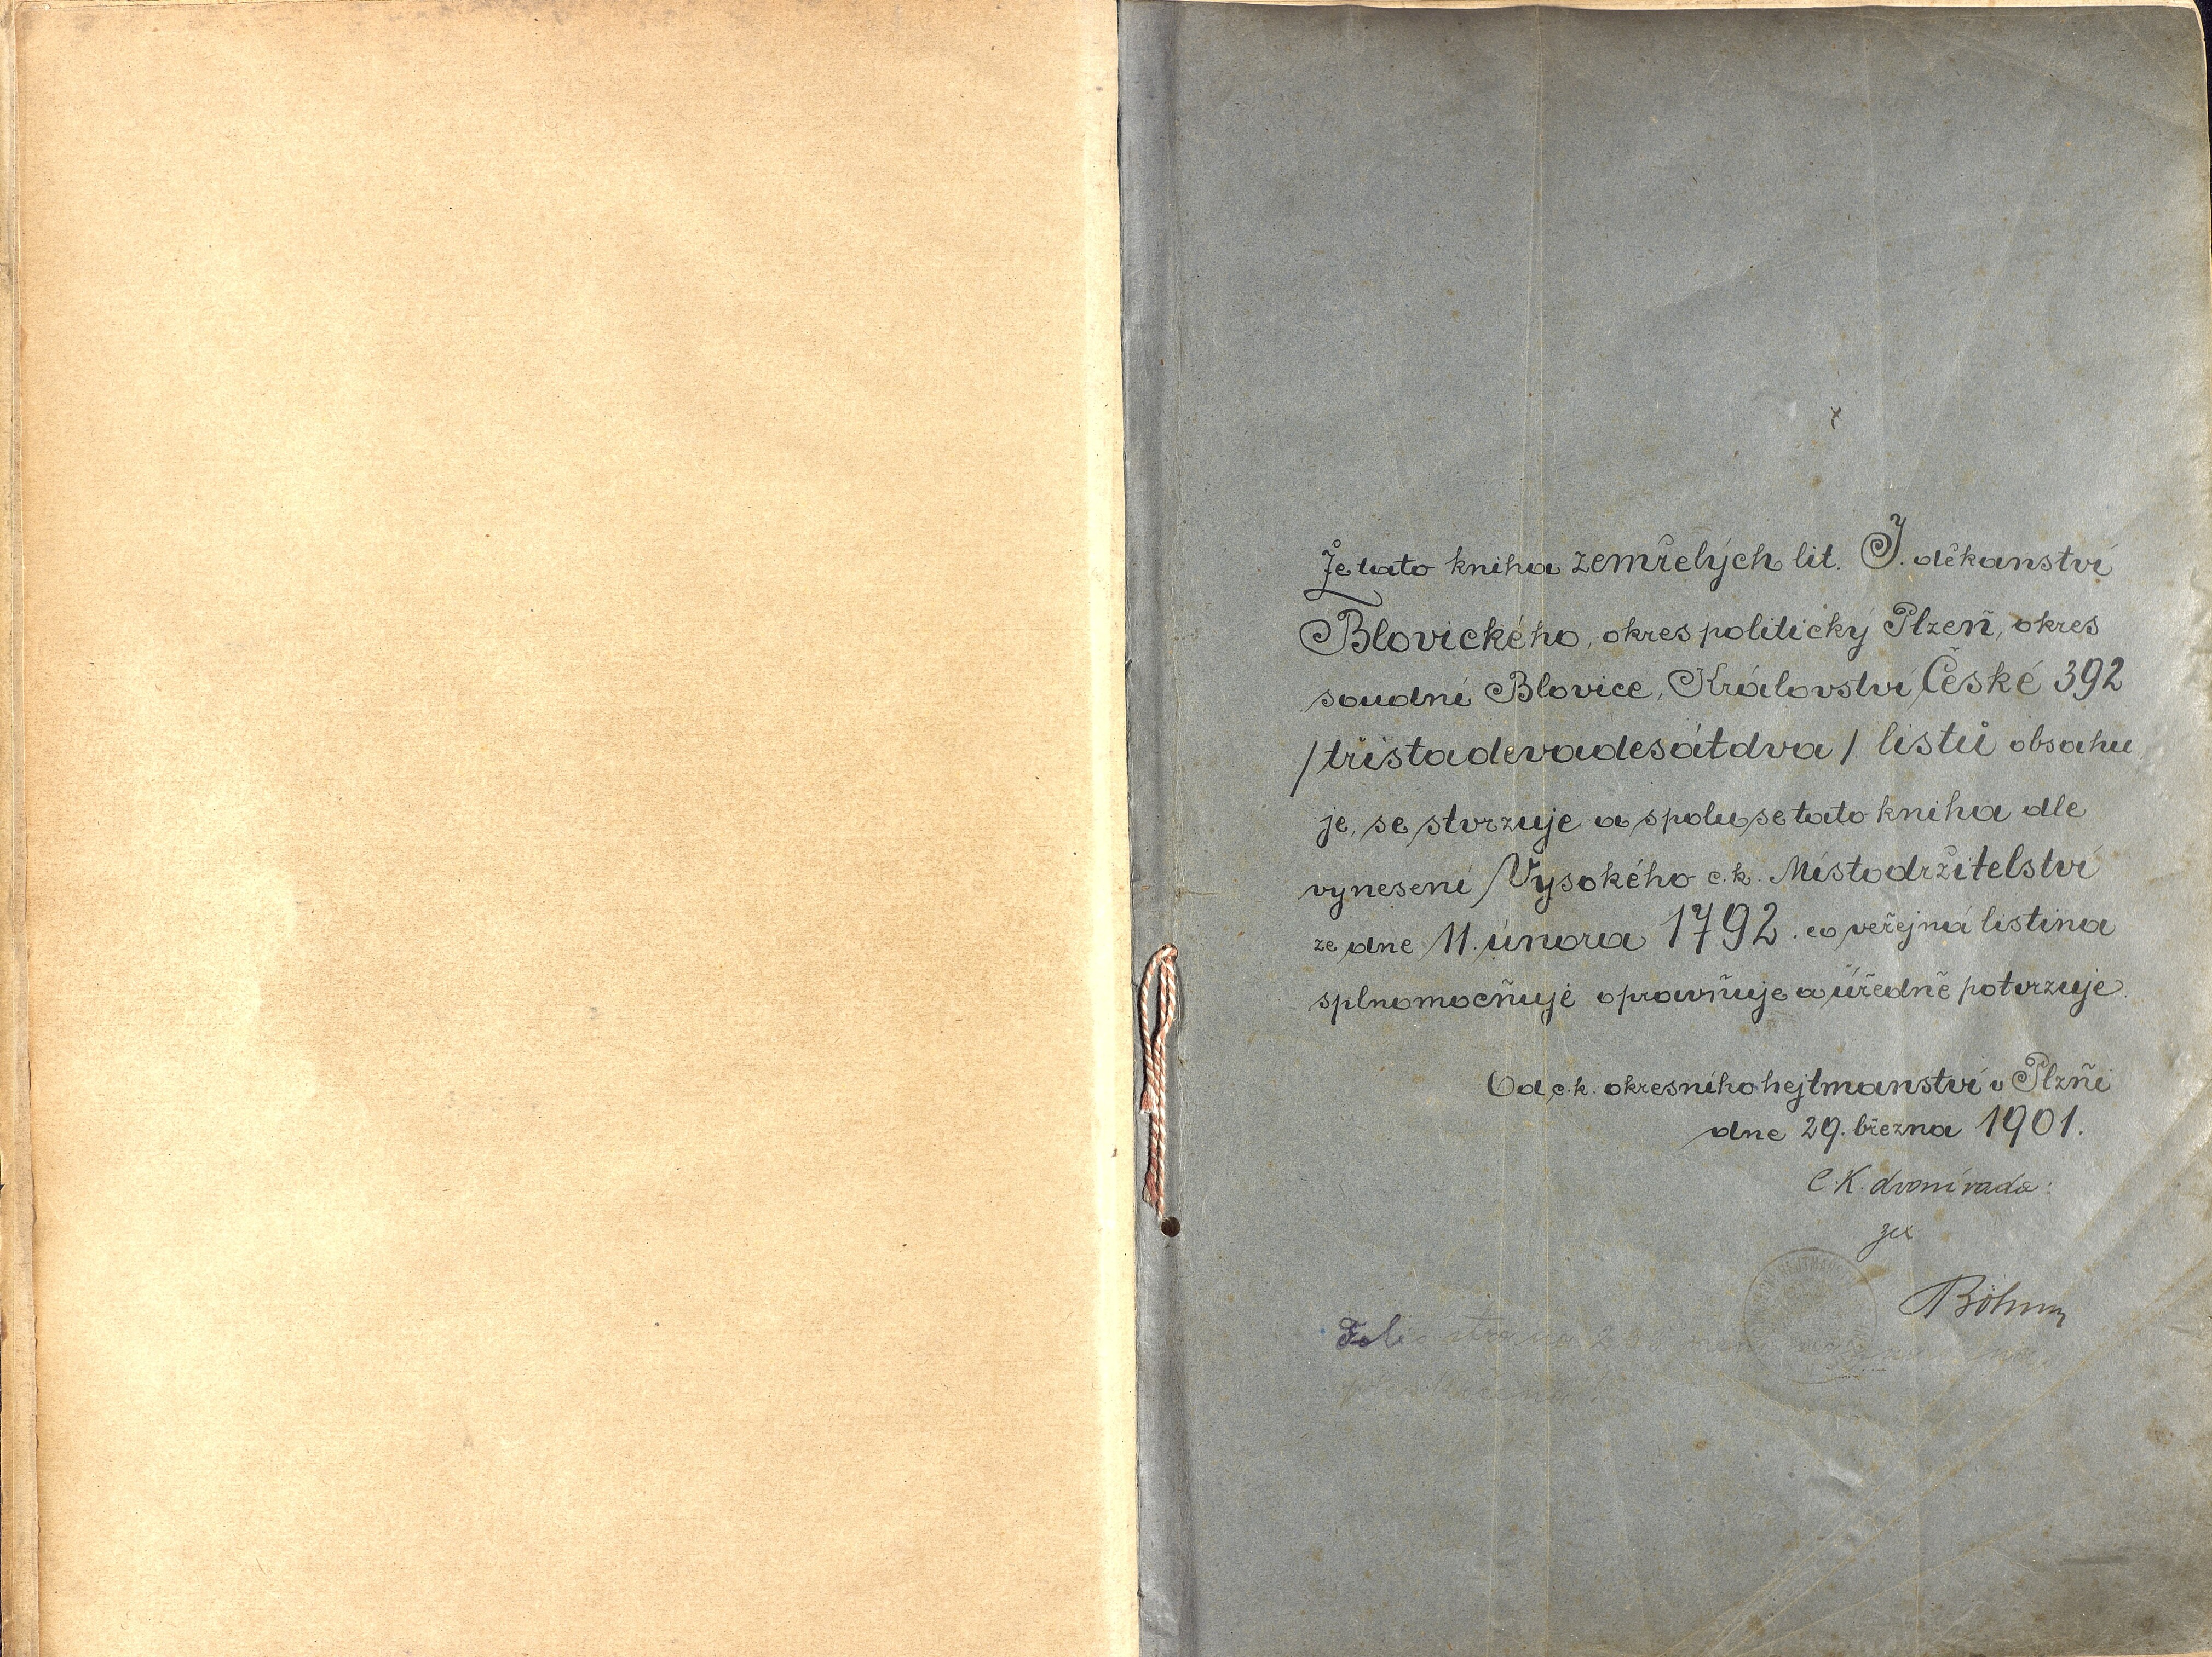 Že tato kniha zemřelých lit. J. děkanství
Blovického, okres politický Plzeň, okres
soudní Blovice, Království České 392
/třistadevadesátdva/ listů obsahu
je, se stvrzuje a spolu se tato kniha dle
vynesení Vysokého c.k. Místodržitelství
ze dne 11. února 1792. co veřejná listina
splnomocňuje opravňuje a úředně potvrzuje.
Od c.k. okresního hejtmanství v Plzňi
dne 29. března 1901.
C.K. dvorní rada:
Böhm
Folio strana